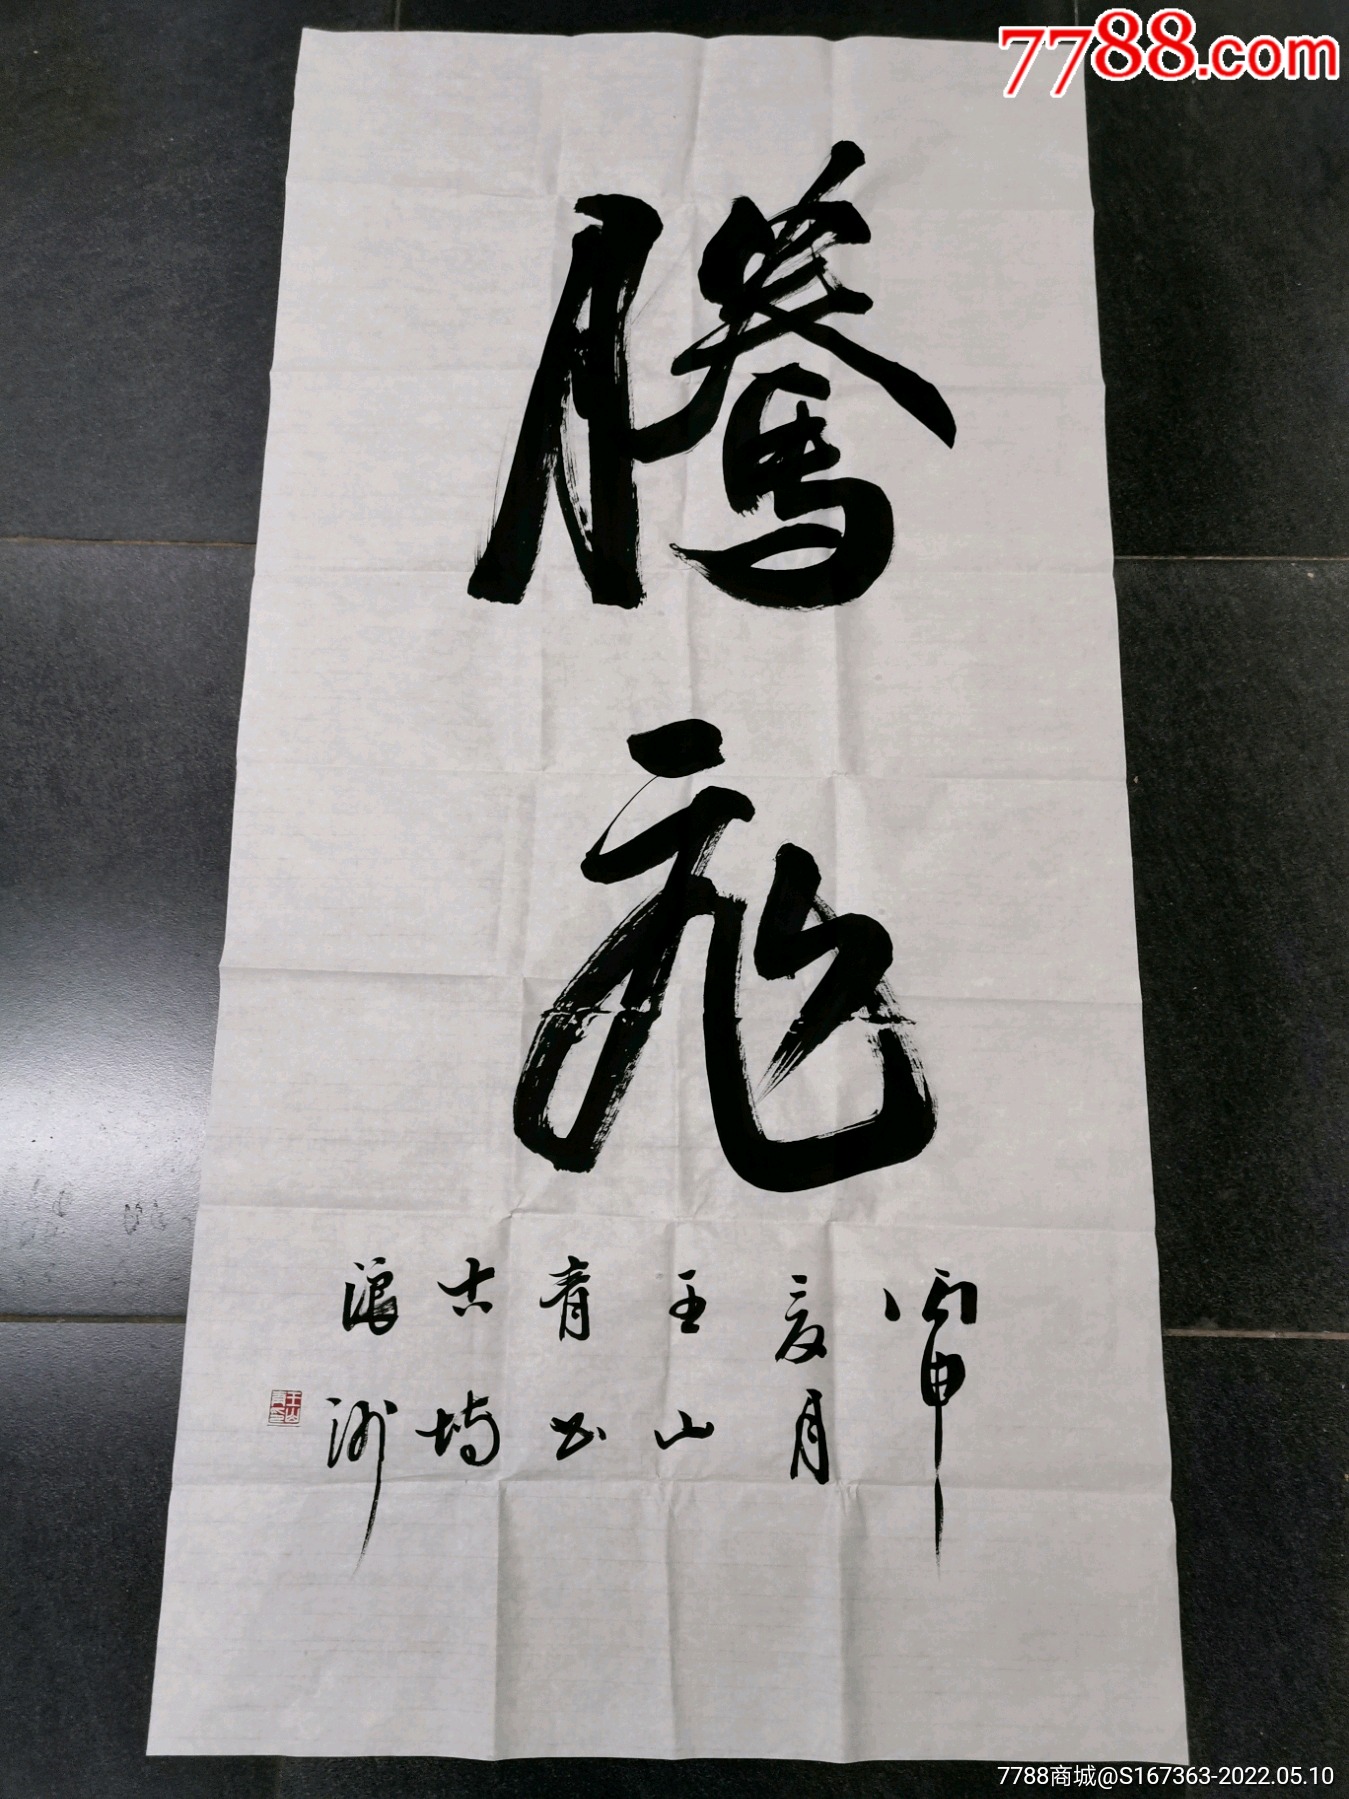 7788.com
腾飛
丙申
夏月
王山
青书
古
滄洲
7788商城@S167363-2022.05.10